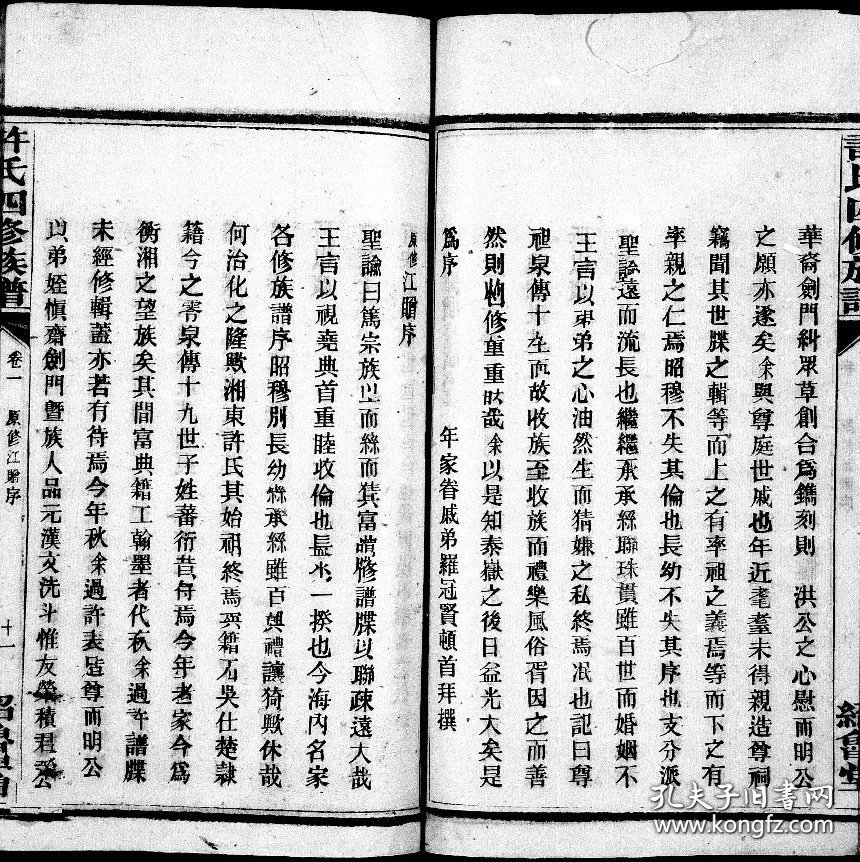 華裔劍門糾眾草創合爲鐫刻則 洪公之心慰而明公
之願亦遂矣余與尊庭世戚也年近耄耋未得親造尊祠
竊聞其世牒之輯等而上之有率祖之義焉等而下之有
率親之仁焉昭穆不失其倫也長幼不失其序也支分派
聖諭遠而流長也繼繼承承綿聯珠貫雖百世而婚姻不
王言以弟之心油然生而猜嫌之私終焉泯也記曰尊
祖故收族至收族而禮樂風俗胥因之而善
然則修重重哉余以是知泰嶽之後日益光大矣是
爲序
年家眷戚弟羅冠賢頓首拜撰
原修江贈序
聖諭曰篤宗族以而綿而富修譜牒以聯疎遠大哉
王言以視堯典首重睦收倫也一揆也今海內名家
各修族譜序昭穆別長幼承綿雖百禮讓猗歟休哉
何治化之隆歟湘東許氏其始祖終焉籍吳仕楚隸
籍今之雩泉傳十九世子姓蕃衍焉今年老家今爲
衡湘之望族矣其間富典籍工翰墨者代余過許譜牒
未經修輯蓋亦若有待焉今年秋余過許表尊而明公
以弟姪愼齋劍門曁族人品元漢文洗斗惟友積君
許氏四修族譜
卷一
原修江贈序
十一
許氏四修族譜
孔夫子旧書网
www.kongfz.com